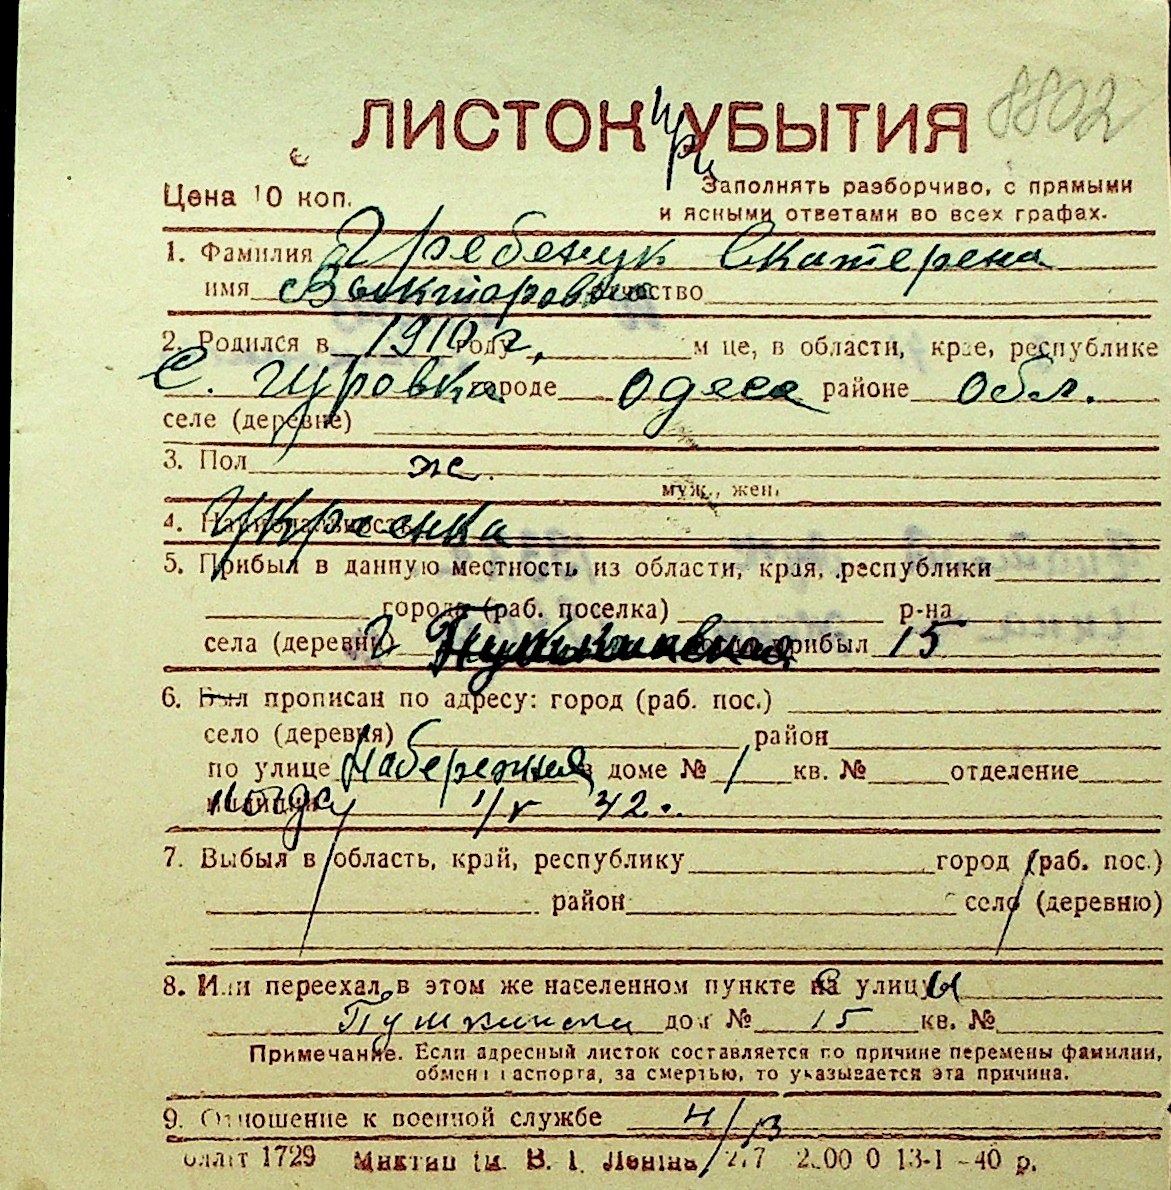 8802
ЛИСТОК при УБЫТИЯ
Цена 10 коп.
Заполнять разборчиво, с прямыми
и ясными ответами во всех графах.
1. Фамилия Гребенук Екатерена
имя Викторовна отчество
2. Родился в 1910 г. году м-це, в области, крае, республике
с. Гуровка городе Одеса районе обл.
селе (деревне)
3. Пол ж.
муж., жен.
4. Национальность Украенка
5. Прибыл в данную местность из области, края, республики
города (раб. поселка) р-на
села (деревни) прибыл 15
6. Был прописан по адресу: город (раб. пос.)
село (деревня) район
по улице Набережная в доме № 1 кв. № отделение
милиции 1/V 42.
7. Выбыл в область, край, республику город (раб. пос.)
район село (деревню)
8. Или переехал в этом же населенном пункте на с улицу ы
Пушкински дом № 15 кв. №
Примечание. Если адресный листок составляется по причине перемены фамилии,
обмен паспорта, за смертью, то указывается эта причина.
9. Отношение к военной службе н/в
1729 В. І. Леніна 13-1 -40 р.